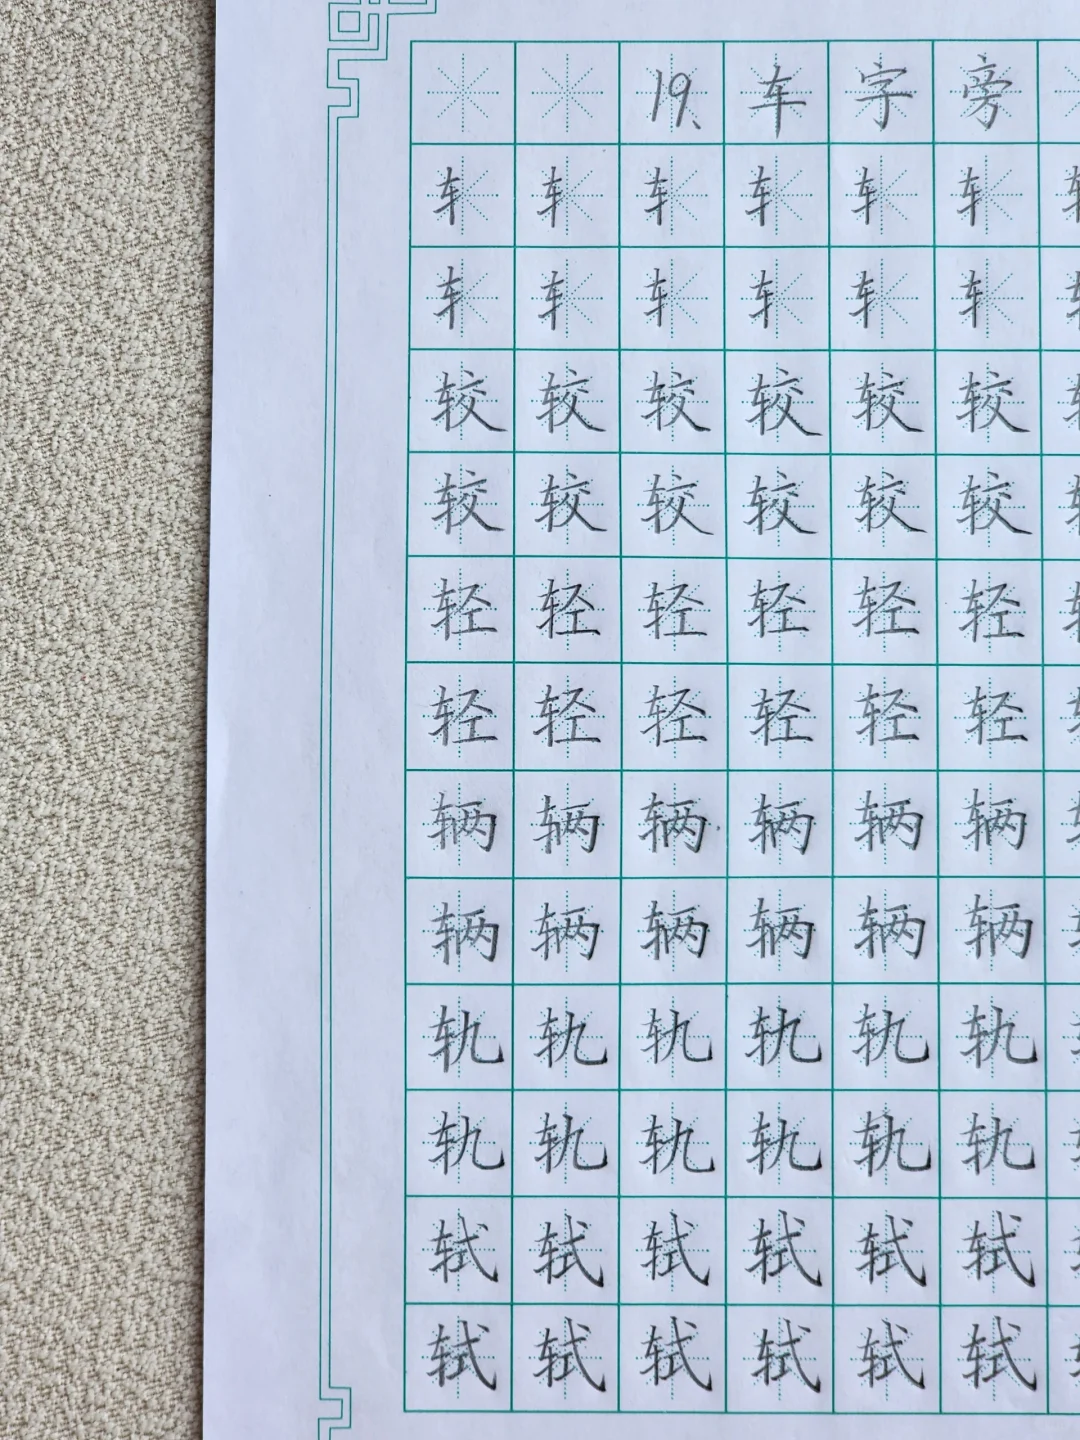 19、车字旁
车车车车车车
车车车车车车
较较较较较较
较较较较较较
轻轻轻轻轻轻
轻轻轻轻轻轻
辆辆辆辆辆辆
辆辆辆辆辆辆
轨轨轨轨轨轨
轨轨轨轨轨轨
轼轼轼轼轼轼
轼轼轼轼轼轼